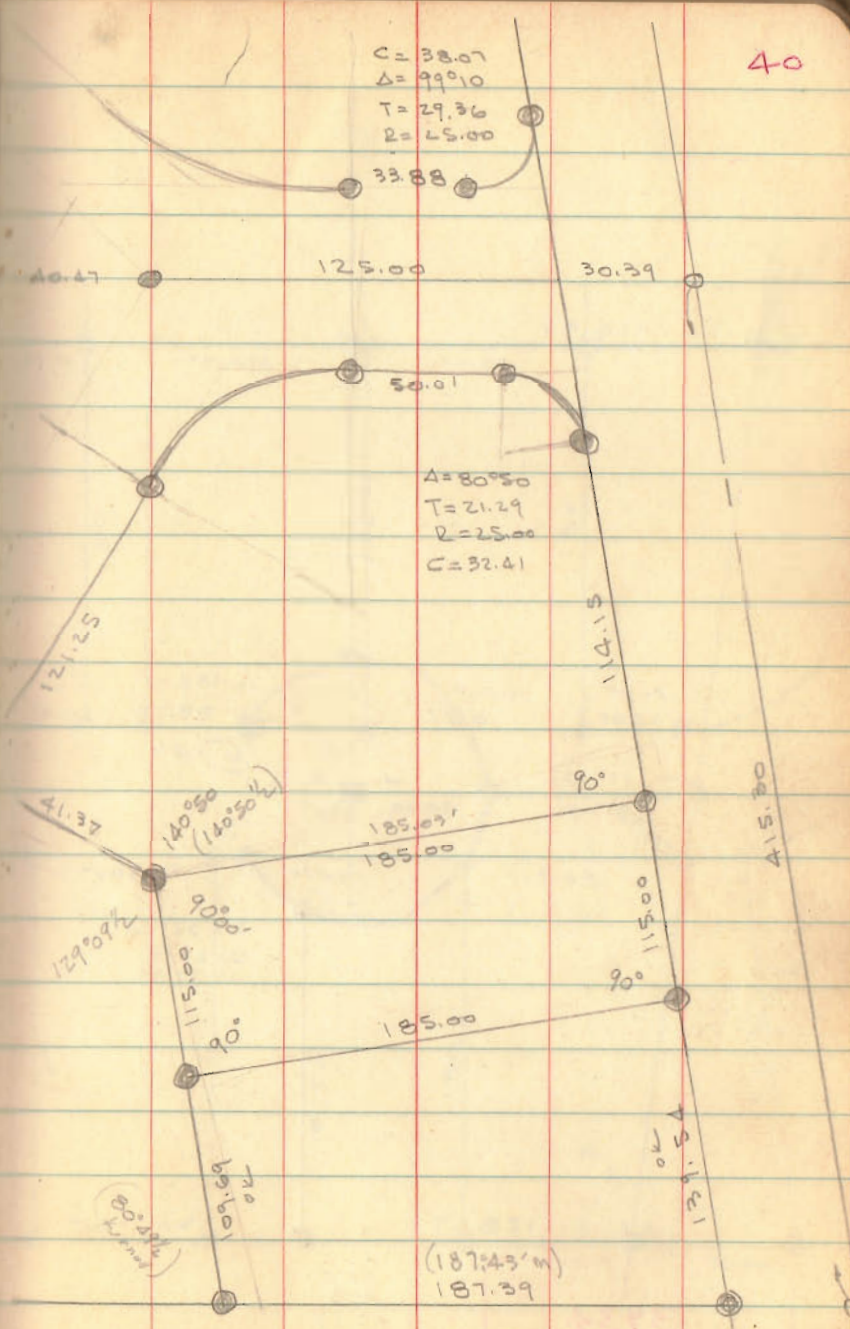 40
C = 38.07
Δ = 99°10
T = 29.36
R = 25.00
33.88
40.47
125.00
30.39
50.01
Δ = 80°50
T = 21.29
R = 25.00
C = 32.41
121.25
114.15
415.30
41.37
140°50
(140°50½)
90°
185.03'
185.00
90°00'
129°09½
115.00
115.00
90°
90°
185.00
109.69
OK
139.54
OK
(187.43' m)
187.39